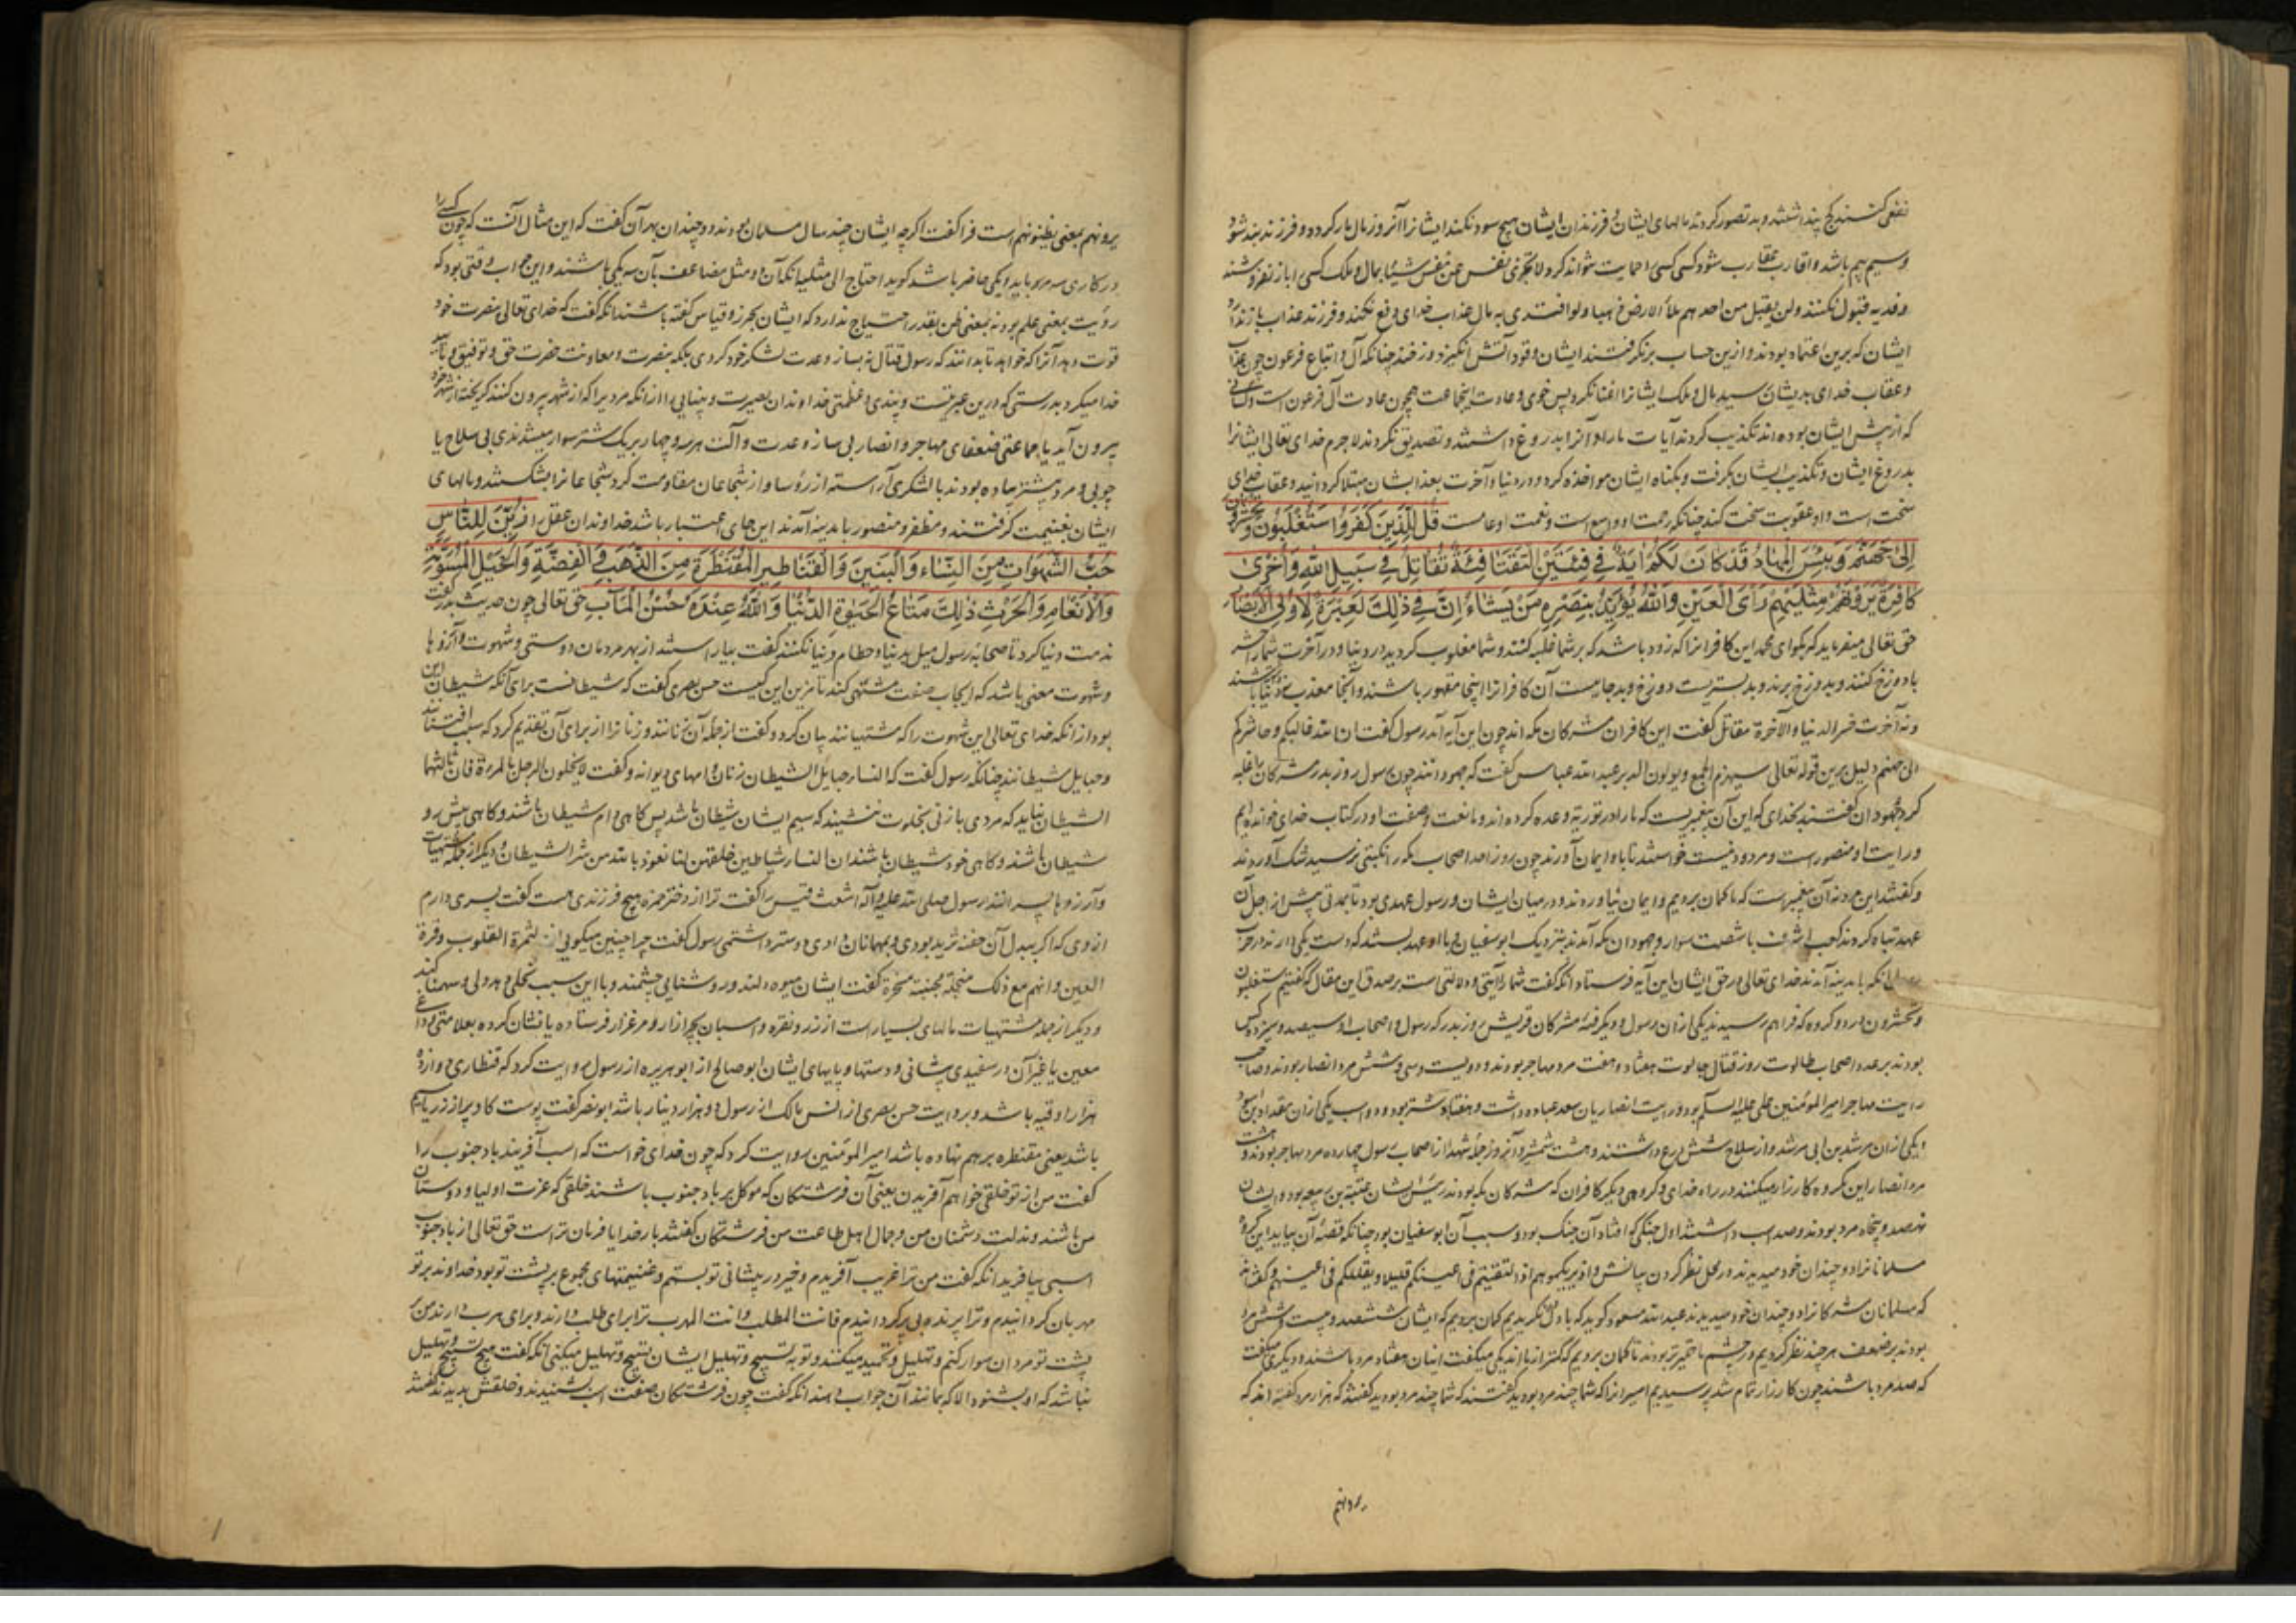 نفعی کنند کج پنداشتند و بد تصور کردند مالهای ایشان و فرزندان ایشان هیچ سود نکند ایشانرا آنروز مال مار کردد و فرزند بند شود
وسیم بیم باشد و اقارب عقارب شود کسی کسیرا حمایت نتواند کرد لا تجزی نفس عن نفس شیئا بمال و ملک کسی را باز نفروشند
وفدیه قبول نکنند ولن یقبل من احدهم ملأ الارض ذهبا ولو افتدی به مال عذاب خدای دفع نکند و فرزند عذاب باز ندارد
ایشان که برین اعتماد بودند و ازین حساب برنگرفتند ایشان وقود آتش انگیز دوزخند چنانکه آل و اتباع فرعون چون عذاب
وعقاب خدای بدیشان رسید مال و ملک ایشانرا اغنا نکرد پس خوی و عادت اینجماعت همچون عادت آل فرعون است وکسانی
که از پیش ایشان بوده‌اند تکذیب کردند آیات ما را و آنرا بدروغ داشتند و تصدیق نکردند لاجرم خدای تعالی ایشانرا
بدروغ ایشان و تکذیب ایشان بگرفت و بگناه ایشان مواخذه کرد و در دنیا و آخرت بعذابشان مبتلا گردانید و عقاب خدای
سخت است و او عقوبت سخت کند چنانکه رحمت او واسع است و نعمت او عام است قُلْ لِلَّذِینَ کَفَرُوا سَتُغْلَبُونَ وَتُحْشَرُونَ
اِلیٰ جَهَنَّمَ وَبِئْسَ الْمِهَادُ قَدْ کَانَ لَکُمْ اٰیَةٌ فِی فِئَتَیْنِ الْتَقَتَا فِئَةٌ تُقَاتِلُ فِی سَبِیلِ اللّٰهِ وَاُخْرٰی
کَافِرَةٌ یَرَوْنَهُمْ مِثْلَیْهِمْ رَأْیَ الْعَیْنِ وَاللّٰهُ یُؤَیِّدُ بِنَصْرِهِ مَنْ یَشَاءُ اِنَّ فِی ذٰلِکَ لَعِبْرَةً لِاُولِی الْاَبْصَارِ
حق تعالی میفرماید که بگو ای محمد این کافرانرا که زود باشد که بر شما غلبه کنند و شما مغلوب گردید در دنیا و در آخرت شما را حشر
با دوزخ کنند و بدوزخ برند و بد بستریست دوزخ و بد جایست آن کافرانرا اینجا مقهور باشند و آنجا معذب نه دنیا باشند
ونه آخرت خسر الدنیا والآخرة مقاتل گفت این کافران مشرکان مکه‌اند چون این آیه آمد رسول گفت ان الله غالبکم وحاشرکم
الی جهنم دلیل برین قوله تعالی سیهزم الجمع ویولون الدبر عبد الله عباس گفت که جهودانند چون رسول روز بدر مشرکان را غلبه
کرد جهودان گفتند بخدای که این آن پیغمبریست که ما را در توریة وعده کرده‌اند و ما نعت و صفت او در کتاب خدای خوانده‌ایم
ورایت او منصور است و مردود نیست خواستند تا با و ایمان آورند چون روز احد اصحاب مکه را نکبتی برسید شک آوردند
وگفتند این مرد نه آن پیغمبر است که ما گمان بردیم و ایمان نیاوردند و در میان ایشان و رسول عهدی بود تا بمدتی پیش از اجل آن
عهد تباه کردند کعب اشرف با شصت سوار و جهودان بمکه آمدند بنزدیک ابوسفیان و با او عهد بستند که دست یکی دارند در حرب
آنگه با مدینه آمدند خدای تعالی در حق ایشان این آیه فرستاد آنگه گفت شما را آیتی و دلالتی است بر صدق این مقال که گفتیم ستغلبون
وتحشرون در دو گروه که فراهم رسیدند یکی ازان رسول و دیگر فئه مشرکان قریش روز بدر که رسول و اصحاب او سیصد و سیزده کس
بودند بر عدد اصحاب طالوت روز قتال جالوت هفتاد و هفت مرد مهاجر بودند و دویست و سی و شش مرد انصار بودند و صاحب
رایت مهاجر امیرالمؤمنین علی علیه السلم بود و رایت انصاریان سعد عباده داشت و هفتاد شتر بود و دو اسب یکی ازان مقداد بن اسود
ویکی ازان مرثد بن ابی مرثد و از سلاح شش درع داشتند و هشت شمشیر و آنروز جمله شهدا از اصحاب رسول چهارده مرد مهاجر بودند و هشت
مرد انصار این گروه کارزار میکنند در راه خدای و گروهی دیگر کافران که مشرکان مکه بودند رئیس ایشان عتبة بن ربیعه بود و ایشان
نهصد و پنجاه مرد بودند و صد اسب داشتند اول جنگی که افتاد آن جنگ بود و سبب آن ابوسفیان بود چنانکه قصه آن بیاید این گروه
مسلمانانرا دو چندان خود میدیدند در محل نظر کردن بیانش واذ یریکموهم اذ التقیتم فی اعینکم قلیلا ویقللکم فی اعینهم و گفته‌اند
که مسلمانان مشرکانرا دو چندان خود میدیدند عبد الله مسعود گوید که باول نگریدیم گمان بردیم که ایشان ششصد و بیست و شش مرد
بودند بر ضعف هر چند نظر کردیم در چشم ما حقیرتر بودند تا گمان بردیم که کمتر از ما اند یکی میگفت اینان هفتاد مرد باشند و دیگری میگفت
که صد مرد باشند چون کارزار تمام شد پرسیدیم اسیرانرا که شما چند مرد بودید گفتند که شما چند مرد بودید گفتند که هزار مرد گفته‌اند که
یرونهم
یرونهم بمعنی یظنونهم است فرا گفت اگرچه ایشان چند سال مسلمان بودند دو چندان بهر آن گفت که این مثال آنست که چون کسی را
در کاری سه مرد باید و یکی حاضر باشد گوید احتاج الی مثلیه آنکه آن دو مثل مضاعف بآن سه یکی باشند و این جواب وقتی بود که
رؤیت بمعنی علم بود نه بمعنی ظن بقدر احتیاج ندارد که ایشان بحرز و قیاس گفته باشند آنگه گفت که خدای تعالی بنصرت خود
قوت دهد آنرا که خواهد تا بدانند که رسول قتال نه بساز و عدت لشکر خود کردی بلکه بنصرت و معاونت حضرت حق و توفیق و تأیید
خدا میکرد بدرستی که درین عبرتست و پندی و عظمتی خداوندان بصیرت و بینایی را ازانکه مردیرا که از شهر بیرون کنند گریخته از شهر خود
بیرون آید با جماعتی ضعفای مهاجر و انصار بی ساز و عدت و آلت هر سه و چهار بر یک شتر سوار میشدندی بی سلاح با
چوبی و مرد بیشتر پیاده بودند با لشکری آراسته از رؤسا و از شجاعان مقاومت کرد شجاعانرا بشکستند و مالهای
ایشان بغنیمت گرفتند و مظفر و منصور با مدینه آمدند این جای اعتبار باشد خداوندان عقل را زُیِّنَ لِلنَّاسِ
حُبُّ الشَّهَوَاتِ مِنَ النِّسَاءِ وَالْبَنِینَ وَالْقَنَاطِیرِ الْمُقَنْطَرَةِ مِنَ الذَّهَبِ وَالْفِضَّةِ وَالْخَیْلِ الْمُسَوَّمَةِ
وَالْاَنْعَامِ وَالْحَرْثِ ذٰلِکَ مَتَاعُ الْحَیٰوةِ الدُّنْیَا وَاللّٰهُ عِنْدَهُ حُسْنُ الْمَاٰبِ حق تعالی چون حدیث بدر گفت
مذمت دنیا کرد تا صحابه رسول میل بدنیا و حطام دنیا نکنند گفت بیاراستند از بهر مردمان دوستی و شهوت و آرزوها
وشهوت معنی باشد که ایجاب صفت مشتهی کند تا مزین این کیست حسن بصری گفت که شیطانست برای آنکه شیطان این
بود از آنکه خدای تعالی این شهوت را که مشتهیانند بیان کرد و گفت از جمله آن زنانند و زنانرا از برای آن تقدیم کرد که سبب افتتان
وحبایل شیطانند چنانکه رسول گفت که النساء حبایل الشیطان زنان دامهای دیوانه و گفت لا یخلون الرجل بالمرءة فان ثالثهما
الشیطان نباید که مردی با زنی بخلوت بنشیند که سیم ایشان شیطان باشد پس گاهی دام شیطان باشند و گاهی پیش رو
شیطان باشند و گاهی خود شیطان باشند ان النساء شیاطین خلقن لنا نعوذ بالله من شر الشیطان و دیگر از جمله مشتهیات
وآرزوها پسرانند رسول صلی الله علیه وآله اشعث قیس را گفت ترا از دختر حمزه هیچ فرزندی هست گفت پسری دارم
از وی که اگر ببدل آن جفنه ثرید بودی و بمهمانان دادی دوستر داشتمی رسول گفت چرا چنین میگویی انهم لثمرة القلوب وقرة
العین وانهم مع ذلک مبخلة مجبنة محزنة گفت ایشان میوه دلند و روشنایی چشمند و با این سبب بخلی و بددلی و سهمناکیند
ودیگر از جمله مشتهیات مالهای بسیار است از زر و نقره و اسبان بچرازار و مرغزار فرستاده یا نشان کرده بعلامتی و داغ
معین یا غیر آن در سفیدی پیشانی و دستها و پایهای ایشان ابوصالح از ابو هریره از رسول روایت کرد که قنطاری دوازده
هزار اوقیه باشد و بروایت حسن بصری از انس مالک از رسول دو هزار دینار باشد ابونضر گفت پوست گاو پر از زر یا سیم
باشد یعنی مقنطره بر هم نهاده باشد امیرالمؤمنین روایت کرد که چون خدای خواست که اسب آفریند باد جنوب را
گفت من از تو خلقی خواهم آفریدن یعنی آن فرشتگان که موکل بر باد جنوب باشند خلقی که عزت اولیا و دوستان
من باشند و مذلت دشمنان من و جمال اهل طاعت من فرشتگان گفتند بار خدایا فرمان تراست حق تعالی از باد جنوب
اسبی بیافرید آنگه گفت من ترا غریب آفریدم و خیر در پیشانی تو بستم و غنیمتهای مجموع بر پشت تو بود خداوند بر تو
مهربان گردانیدم و ترا پرنده بی پر گردانیدم فانت المطلب وانت المهرب ترا برای طلب دارند و برای هرب دارند من بر
پشت تو مردان سوار کنم و تهلیل و تحمید میکنند و تو به تسبیح و تهلیل ایشان تسبیح و تهلیل میکنی آنگه گفت هیچ تسبیح و تهلیل
نباشد که او بشنود الا که بمانند آن جواب دهد آنگه گفت چون فرشتگان صفت اسب بشنیدند و خلقش بدیدند گفتند